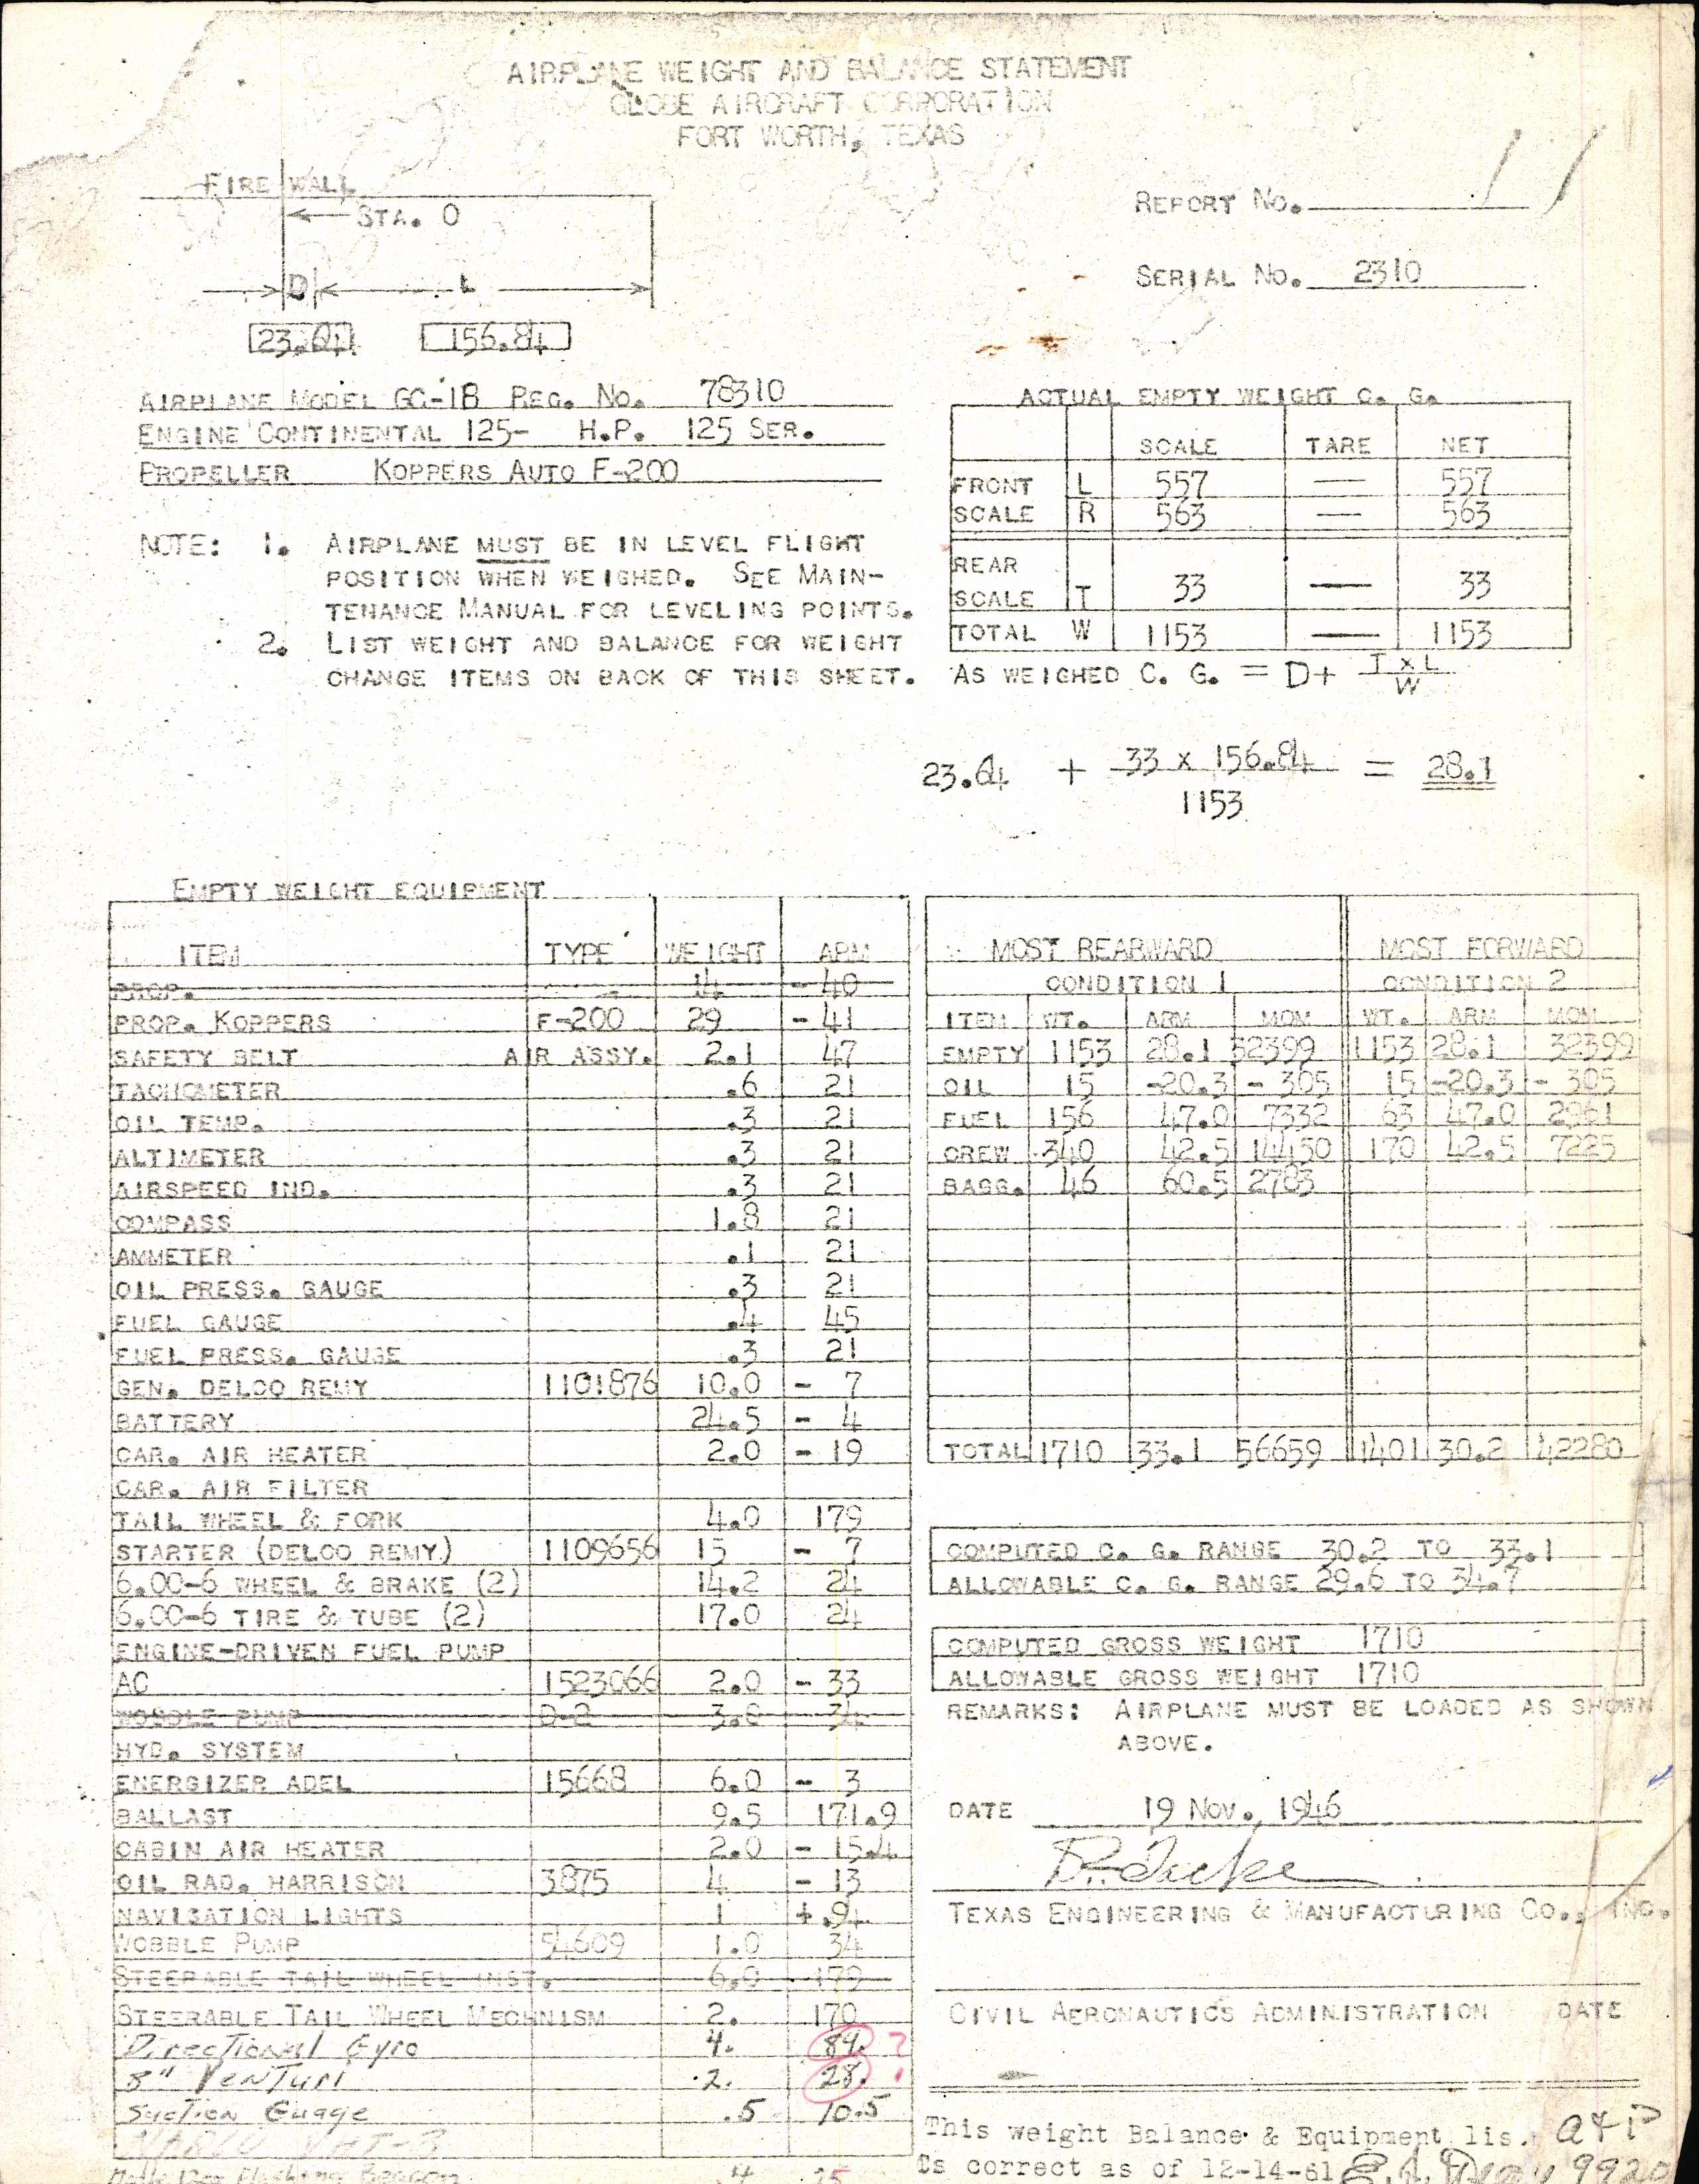 AIRPLANE WEIGHT AND BALANCE STATEMENT
GLOBE AIRCRAFT CORPORATION
FORT WORTH, TEXAS
FIRE WALL
STA. 0
D L
23.64 156.84
REPORT NO. 11
SERIAL NO. 2310
AIRPLANE MODEL GC-1B REG. NO. 78310
ENGINE CONTINENTAL 125- H.P. 125 SER.
PROPELLER KOPPERS AUTO F-200
NOTE: 1. AIRPLANE MUST BE IN LEVEL FLIGHT
POSITION WHEN WEIGHED. SEE MAIN-
TENANCE MANUAL FOR LEVELING POINTS.
2. LIST WEIGHT AND BALANCE FOR WEIGHT
CHANGE ITEMS ON BACK OF THIS SHEET.
ACTUAL EMPTY WEIGHT C. G.
SCALE TARE NET
FRONT L 557 — 557
SCALE R 563 — 563
REAR
SCALE T 33 — 33
TOTAL W 1153 — 1153
AS WEIGHED C. G. = D+ T x L
W
23.64 + 33 x 156.84 = 28.1
1153
EMPTY WEIGHT EQUIPMENT
ITEM TYPE WEIGHT ARM
PROP. 14 - 40
PROP. KOPPERS F-200 29 - 41
SAFETY BELT AIR ASSY. 2.1 47
TACHOMETER .6 21
OIL TEMP. .3 21
ALTIMETER .3 21
AIRSPEED IND. .3 21
COMPASS 1.8 21
AMMETER .1 21
OIL PRESS. GAUGE .3 21
FUEL GAUGE .4 45
FUEL PRESS. GAUGE .3 21
GEN. DELCO REMY 1101876 10.0 - 7
BATTERY 24.5 - 4
CAR. AIR HEATER 2.0 - 19
CAR. AIR FILTER
TAIL WHEEL & FORK 4.0 179
STARTER (DELCO REMY) 1109656 15 - 7
6.00-6 WHEEL & BRAKE (2) 14.2 24
6.00-6 TIRE & TUBE (2) 17.0 24
ENGINE-DRIVEN FUEL PUMP
AC 1523066 2.0 - 33
WOBBLE PUMP D-2 3.8 34
HYD. SYSTEM
ENERGIZER ADEL 15668 6.0 - 3
BALLAST 9.5 171.9
CABIN AIR HEATER 2.0 - 15.4
OIL RAD. HARRISON 3875 4 - 13
NAVIGATION LIGHTS 1 + 94
WOBBLE PUMP 54609 1.0 34
STEERABLE TAIL WHEEL INST. 6.0 179
STEERABLE TAIL WHEEL MECHNISM 2. 170
Directional Gyro 4. 84. ?
3" VenTuri .2. 28.
Suction Guage .5 10.5
NARCO VHT-3
Flashing Beacon 4 25
MOST REARWARD MOST FORWARD
CONDITION 1 CONDITION 2
ITEM WT. ARM MOM WT. ARM MOM
EMPTY 1153 28.1 32399 1153 28.1 32399
OIL 15 -20.3 - 305 15 -20.3 - 305
FUEL 156 47.0 7332 63 47.0 2961
CREW 340 42.5 14450 170 42.5 7225
BAGG. 46 60.5 2783
TOTAL 1710 33.1 56659 1401 30.2 42280
COMPUTED C. G. RANGE 30.2 TO 33.1
ALLOWABLE C. G. RANGE 29.6 TO 34.7
COMPUTED GROSS WEIGHT 1710
ALLOWABLE GROSS WEIGHT 1710
REMARKS: AIRPLANE MUST BE LOADED AS SHOWN
ABOVE.
DATE 19 NOV., 1946
TEXAS ENGINEERING & MANUFACTURING CO., INC.
CIVIL AERONAUTICS ADMINISTRATION DATE
This weight Balance & Equipment lis. a & P
Is correct as of 12-14-61